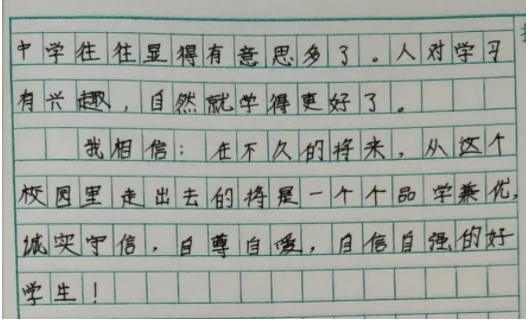 中学往往显得有意思多了。人对学习
有兴趣，自然就学得更好了。
我相信：在不久的将来，从这个
校园里走出去的将是一个个品学兼优，
诚实守信，自尊自爱，自信自强的好
学生！